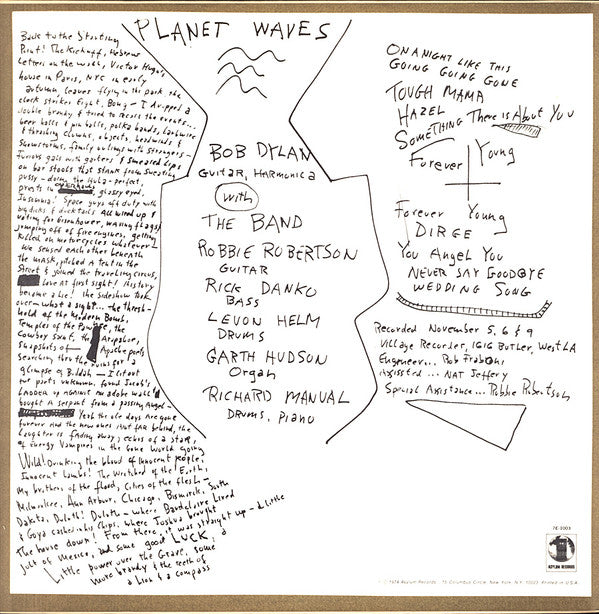 PLANET WAVES
Back to the Starting
Point! The Kickoff, Hebrew
Letters on the wall, Victor Hugo's
house in Paris, NYC in early
autumn, leaves flying in the park the
clock strikes Eight, Bong - I dropped a
double brandy & tried to recall the events...
beer halls & pin balls, polka bands, barbwire
& thrashing clowns, objects, headwinds &
Snowstorms, family outings with strangers -
Furious gals with garters & smeared Lips
on bar stools that stank from sweating
pussy - doing the Hula - perfect,
priests in glassy eyed,
Insomnia! Space guys off duty with
big dicks & ducktails All wired up &
voting for Eisenhower, waving flags &
jumping off of fire engines, getting
Killed on motorcycles whatever -
We sensed each other beneath
the mask, pitched a tent in the
Street & joined the traveling circus,
love at first sight! History
became a lie! the sideshow took
over - what a sight... the thresh-
hold of the Modern Bomb,
Temples of the the
Cowboy Saint, the Arapahoe,
Snapshots of Apache poets
searching thru the ruins for a
glimpse of Buddah - I lit out
for parts unknown, found Jacob's
Ladder up against an adobe wall &
bought a serpent from a passing Angel -
Yeah the ole days are gone
forever And the new ones Aint far behind, the
Laughter is fading away, echos of a star,
of Energy Vampires in the Gone World going
Wild! Drinking the blood of innocent people,
Innocent Lambs! The Wretched of the Earth,
My brothers of the flood, Cities of the flesh -
Milwaukee, Ann Arbor, Chicago, Bismarck, South
Dakota, Duluth! Duluth - where Baudelaire Lived
& Goya cashed in his Chips, where Joshua brought
The house down! From there, it was straight up - A Little
jolt of Mexico, and some good LUCK, a
Little power over the Grave, some
more brandy & the teeth of
a Lion & a compass
BOB DYLAN
GUITAR, HARMONICA
with
THE BAND
ROBBIE ROBERTSON
GUITAR
RICK DANKO
BASS
LEVON HELM
DRUMS
GARTH HUDSON
Organ
RICHARD MANUAL
DRUMS, PIANO
ON A NIGHT LIKE THIS
GOING GOING GONE
TOUGH MAMA
HAZEL
SOMETHING There is About You
Forever Young
Forever Young
DIRGE
You Angel You
NEVER SAY GOODBYE
WEDDING SONG
Recorded November 5, 6 & 9
Village Recorder, 1616 Butler, West LA
Engineer... Rob Fraboni
Assissted... NAT Jeffery
Special Assistance... Robbie Robertson
7E-1003
ASYLUM RECORDS
1974 Asylum Records · 15 Columbus Circle, New York, N.Y. 10023 Printed in U.S.A.